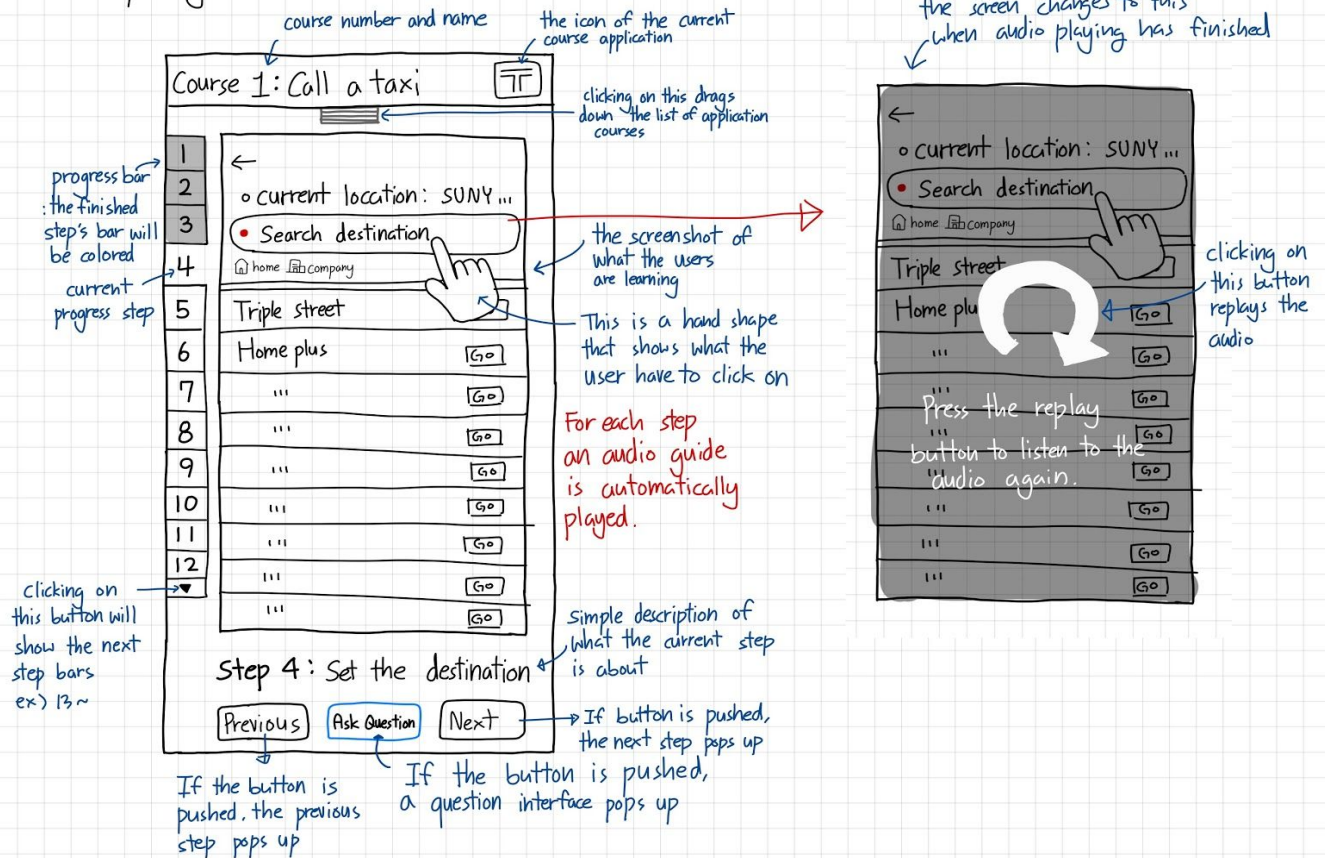 course number and name
the icon of the current
course application
Course 1: Call a taxi
clicking on this drags
down the list of application
courses
progress bar
: the finished
step's bar will
be colored
current
progress step
1
2
3
4
5
6
7
8
9
10
11
12
▼
clicking on
this button will
show the next
step bars
ex) 13~
←
current location: SUNY...
Search destination
home company
Triple street
Home plus
Go
ııı
Go
ııı
Go
ııı
Go
ııı
Go
ııı
Go
ııı
Go
ııı
Go
the screenshot of
what the users
are learning
This is a hand shape
that shows what the
user have to click on
For each step
an audio guide
is automatically
played.
Step 4: Set the destination
simple description of
what the current step
is about
Previous
Ask Question
Next
If button is pushed,
the next step pops up
If the button is
pushed, the previous
step pops up
If the button is pushed,
a question interface pops up
the screen changes to this
when audio playing has finished
←
current location: SUNY...
Search destination
home company
Triple street
Home plu
Go
ııı
Go
ııı
Go
ııı
Go
ııı
Go
ııı
Go
ııı
Go
ııı
Go
Press the replay
button to listen to the
audio again.
clicking on
this button
replays the
audio